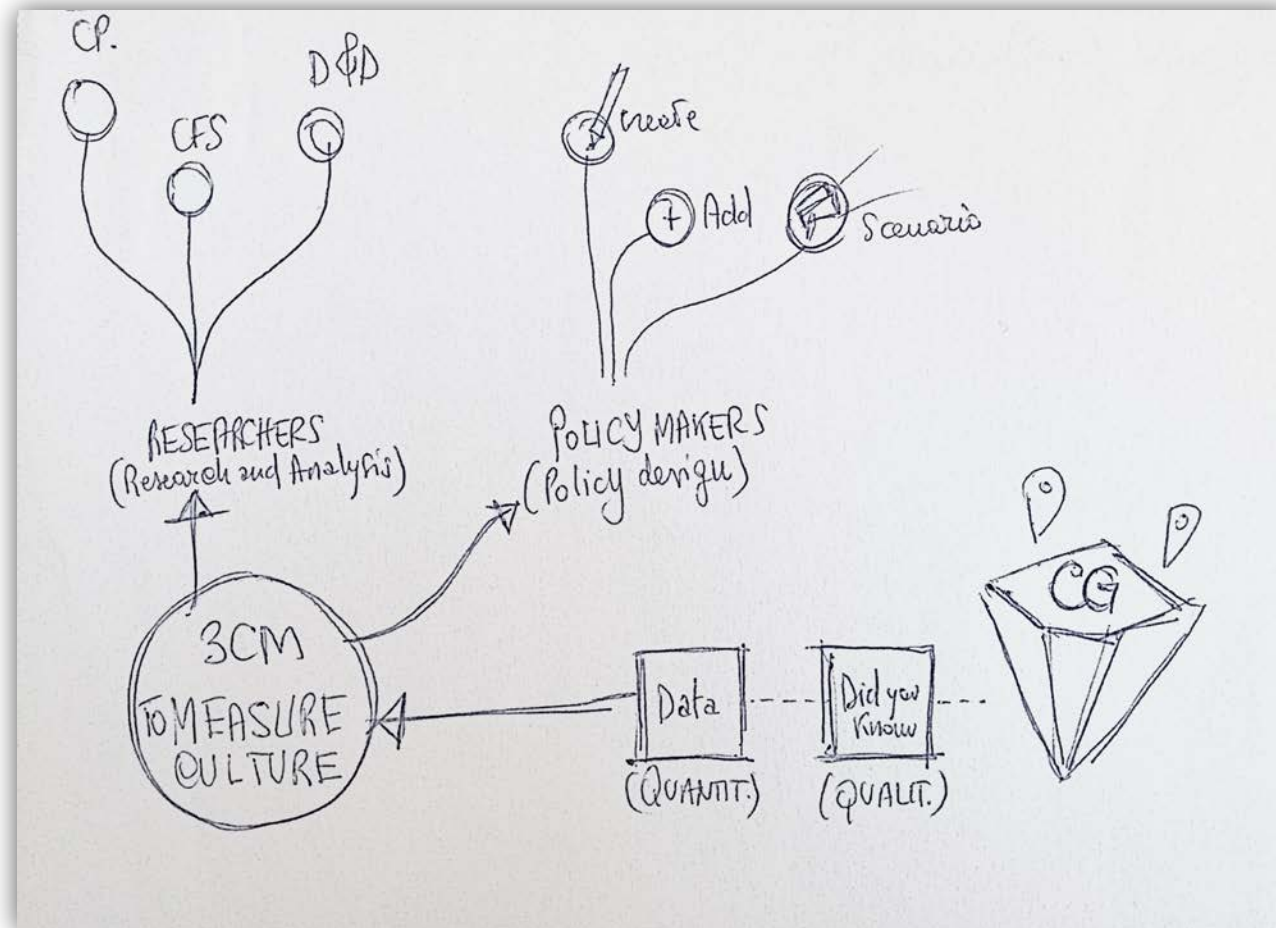 CP.
CFS
D&D
create
Add
Scenario
RESEARCHERS
(Research and Analysis)
POLICY MAKERS
(Policy design)
3CM
TO MEASURE
CULTURE
Data
(QUANTIT.)
Did you
Know
(QUALIT.)
CG